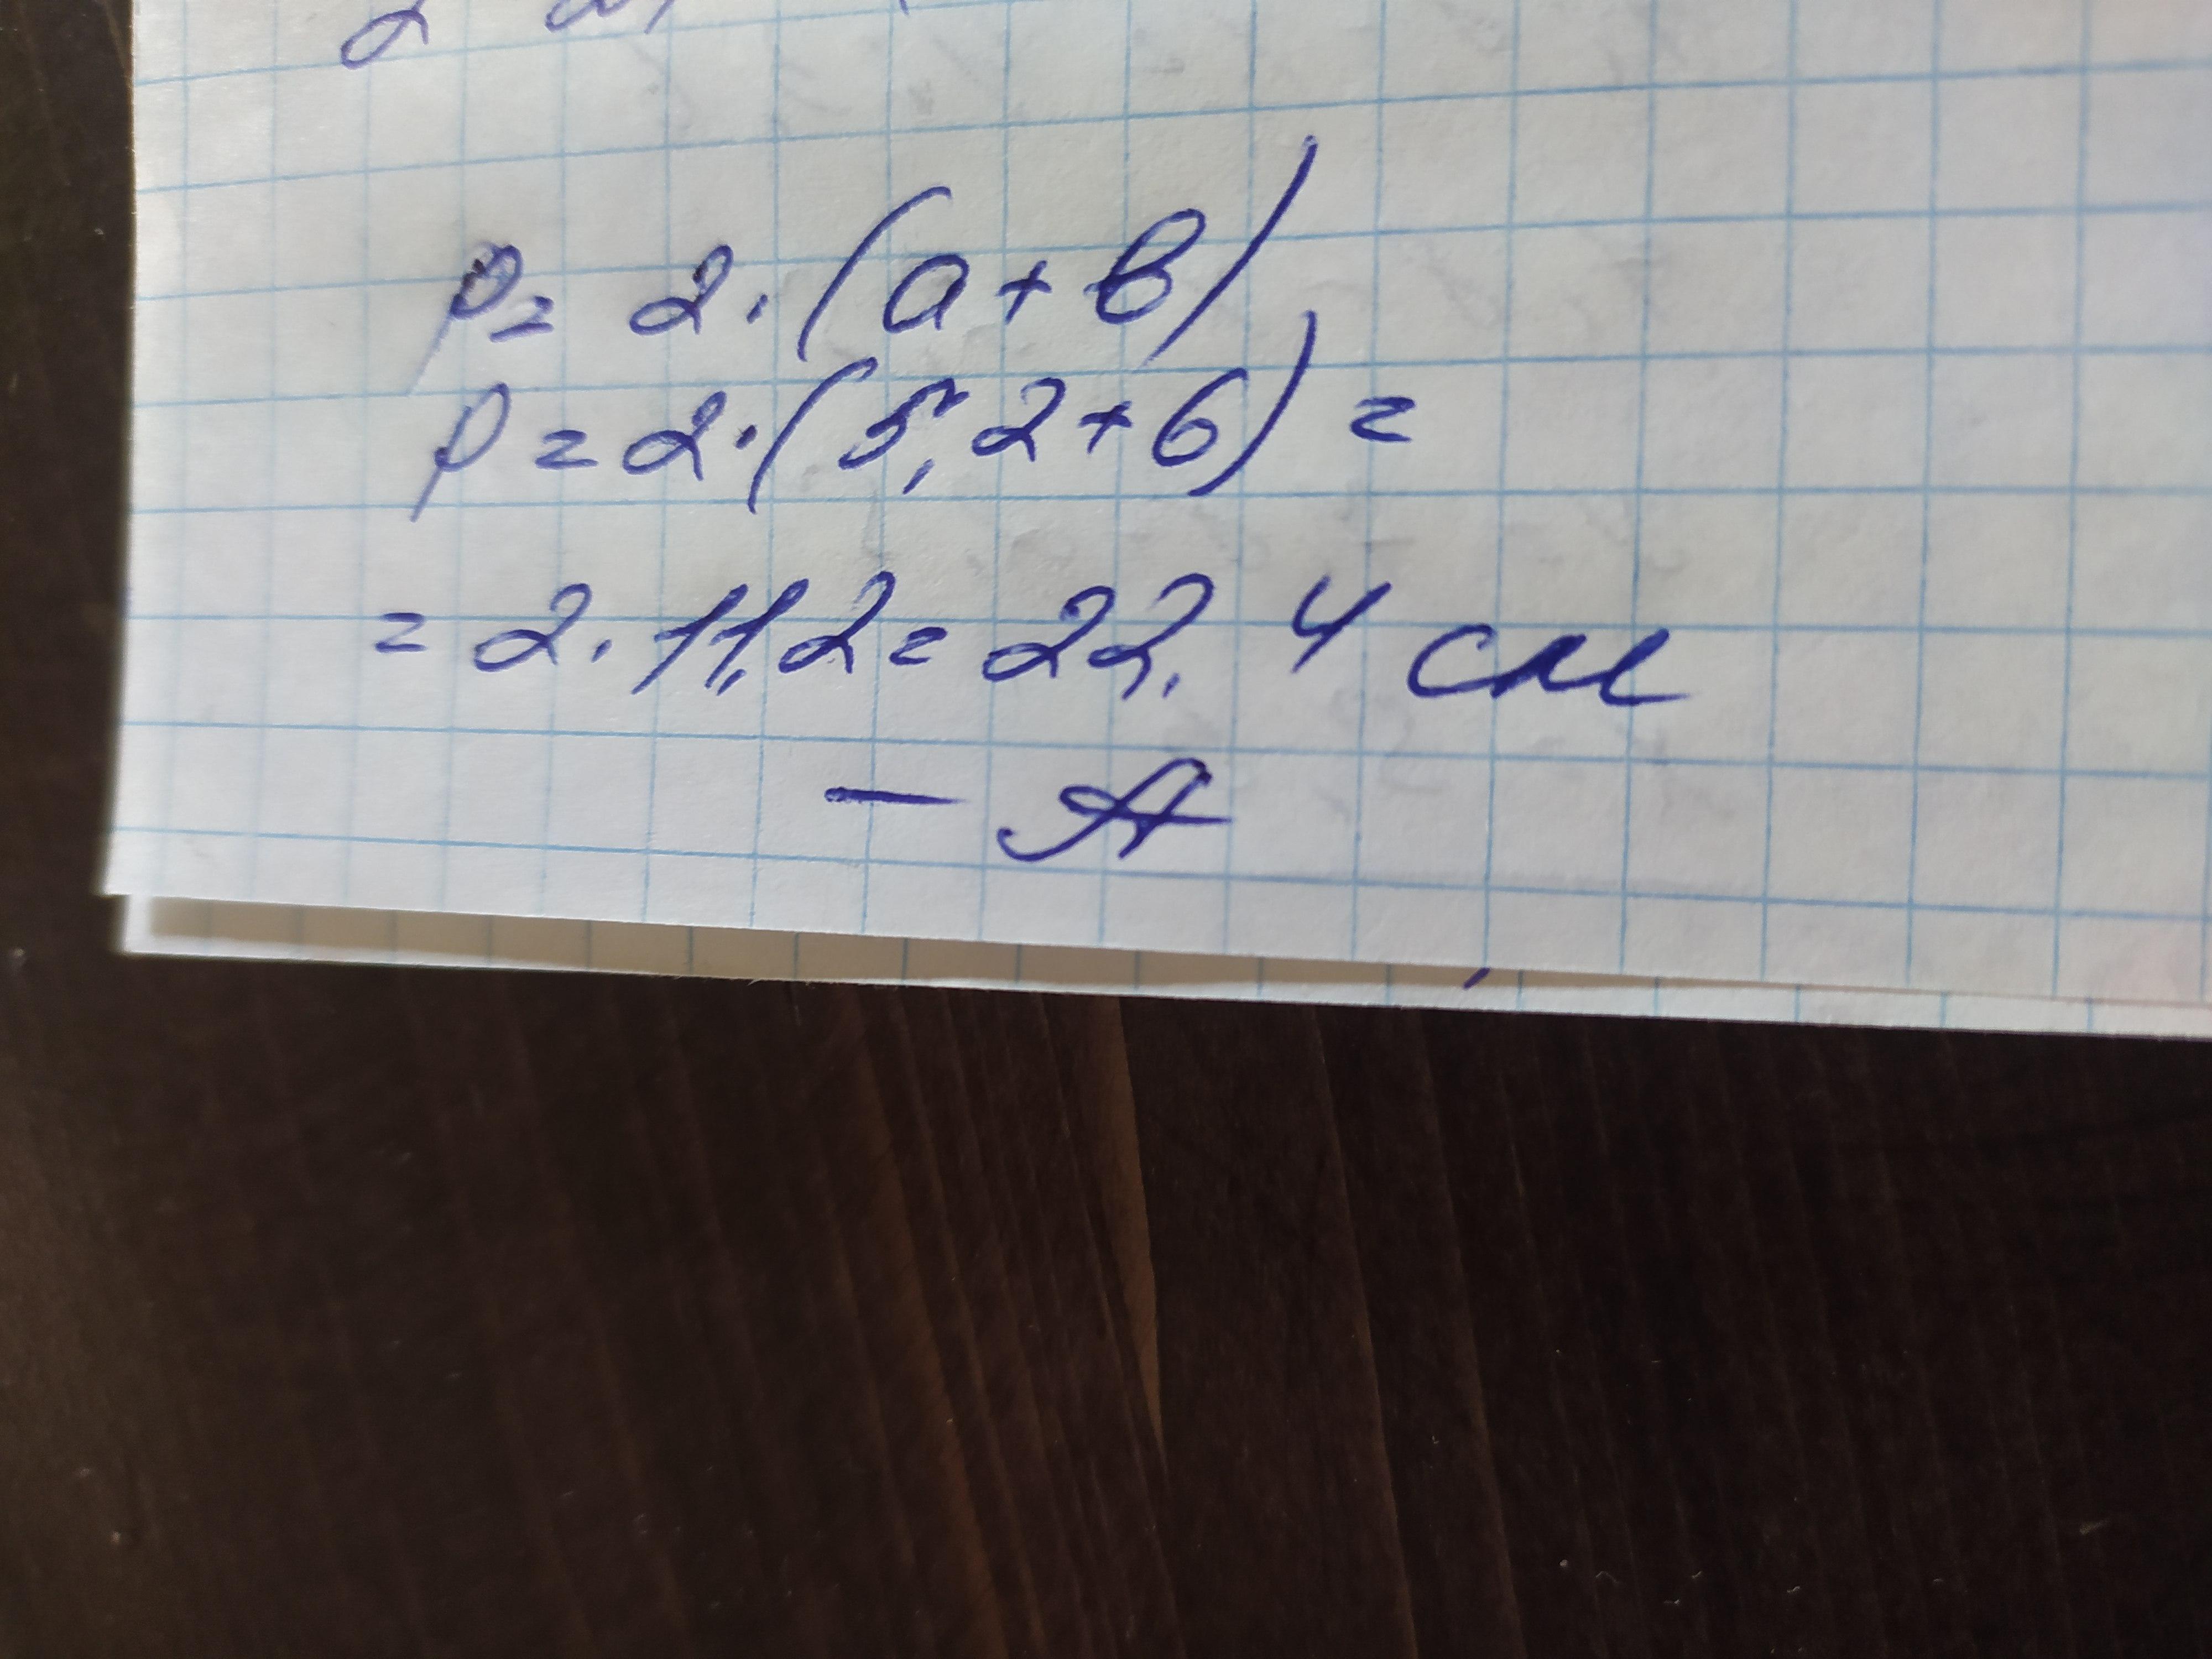 P = 2 · (a + b)
P = 2 · (5,2 + 6) =
= 2 · 11,2 = 22,4 см
— А